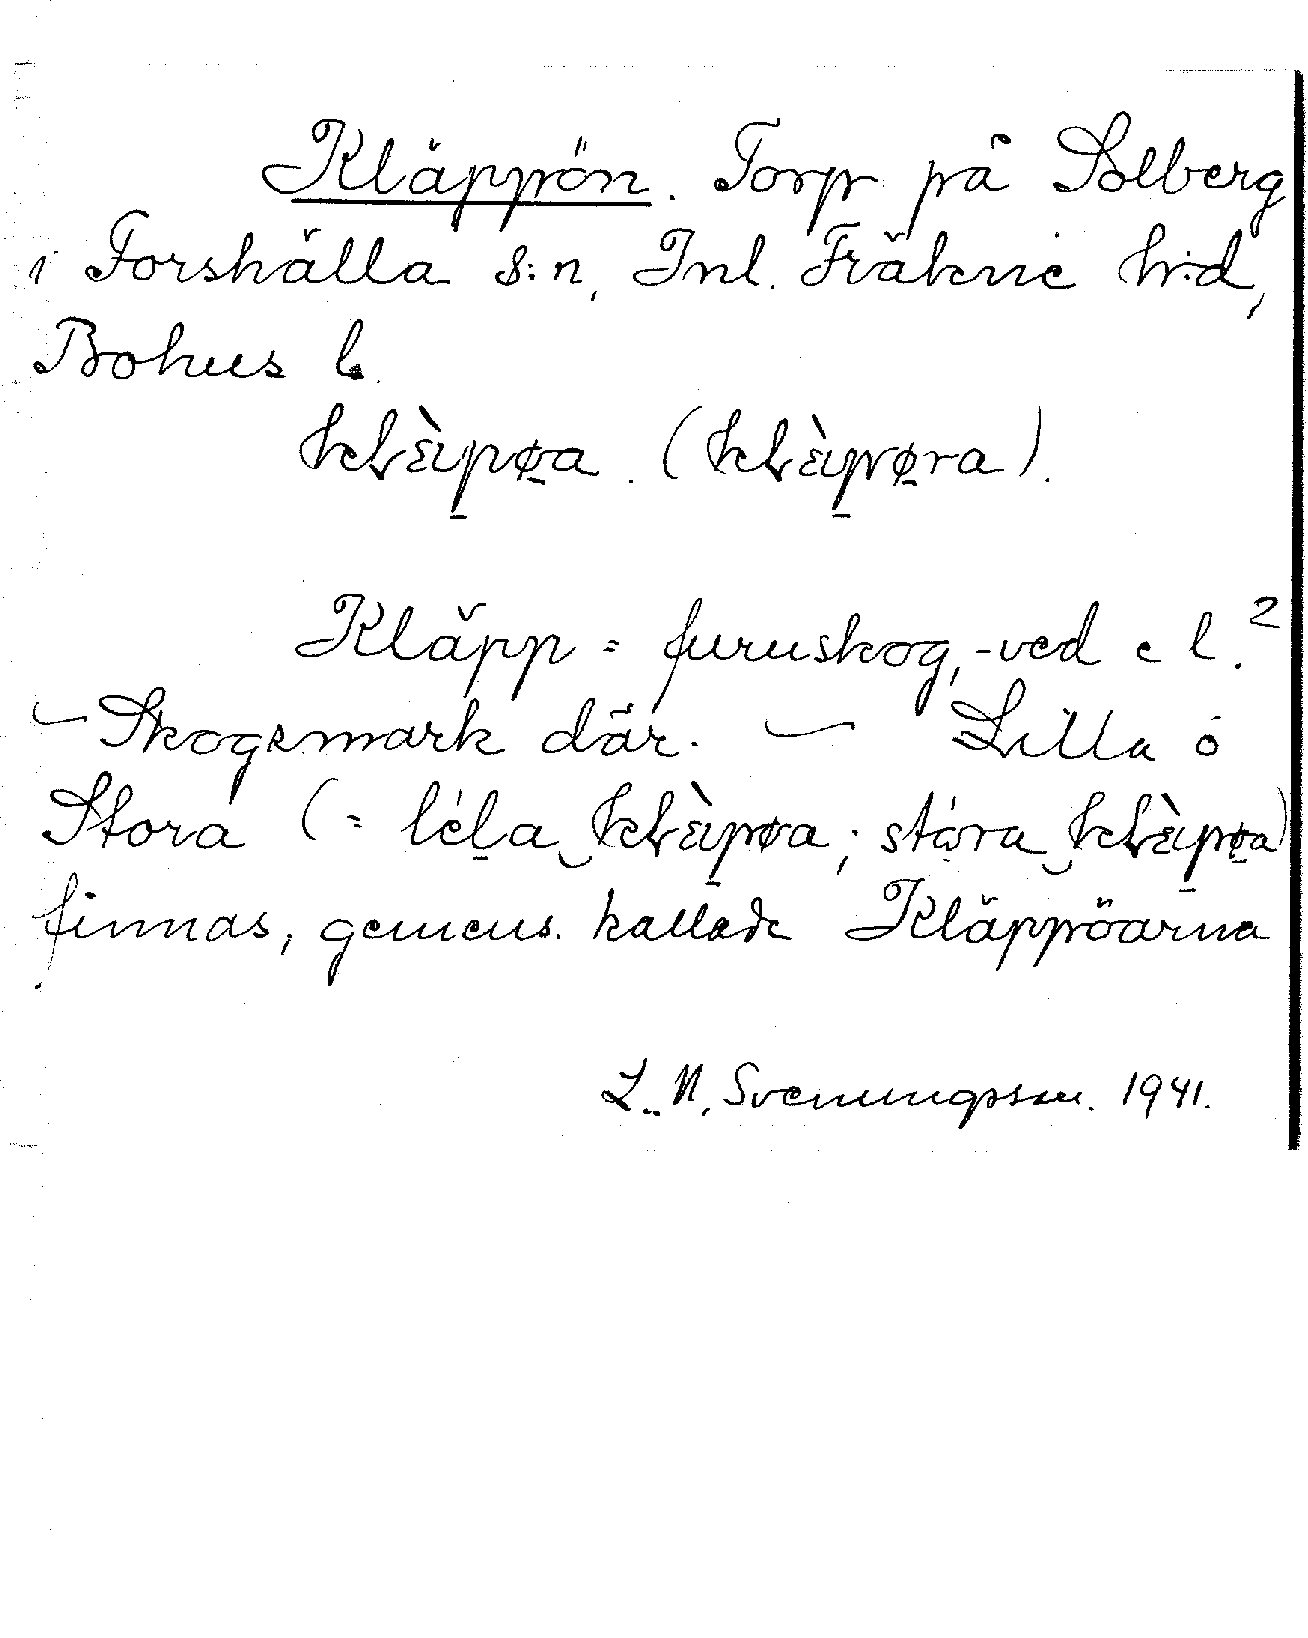 Kläppön. Torp på Solberg
i Forshälla s:n, Inl. Fräkne h:d,
Bohus l.
kḷὲpøa. (kḷὲpøra).
Kläpp = furuskog, -ved e l.?
– Skogsmark där. – Lilla o
Stora (= léla kḷὲpøa; stóra kḷὲpøa)
finnas, gemens. kallade Kläppöarna
L. N. Svenungsson. 1941.